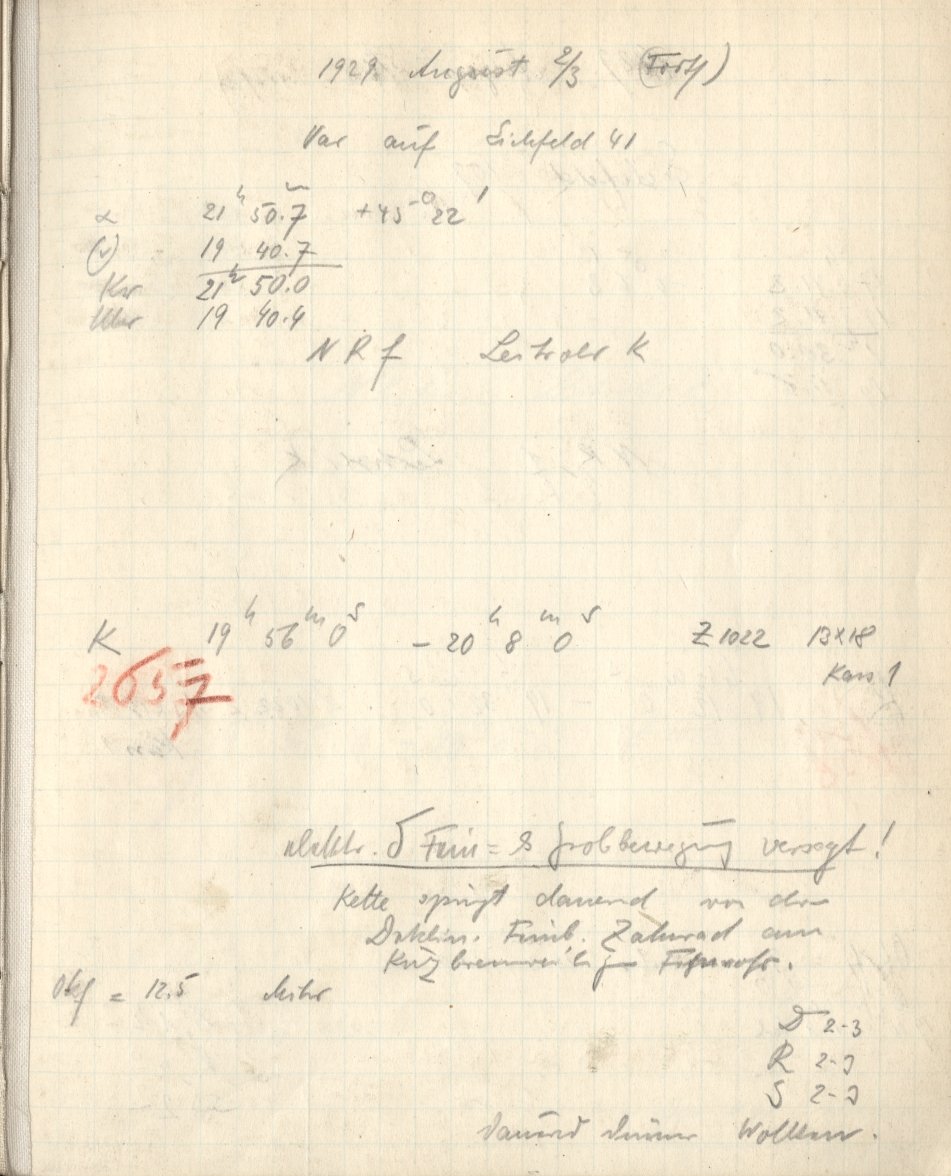 1929 August 2/3
Var auf Eichfeld 41
α 21h 50.7 +45° 22'
(v) 19 40.7
Kr 21h 50.0
Uhr 19 40.4
N R f Leitrohr K
K 19h 56m 0s - 20h 8m 0s Z 1022 13x18
Kass 1
2657
elektr. δ Fein = & Grobbewegung versagt!
Kette springt dauernd von der
Deklin. Feinb. Zahnrad am
Okf = 12.5
D 2-3
R 2-3
S 2-3
Dauernd dünne Wolken.